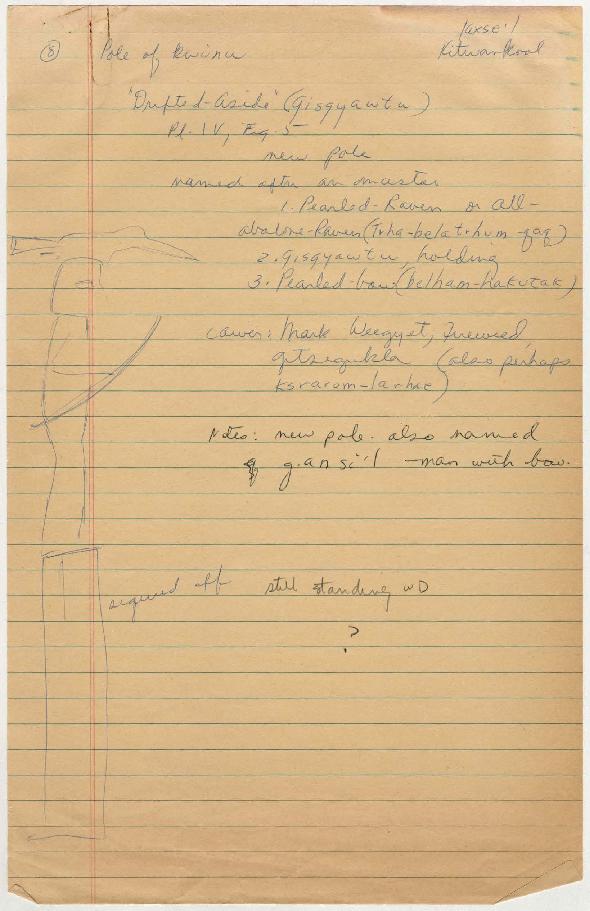 8 Pole of kwinu
laxse'l
Kitwankool
"Drifted-Aside" (Gisgyawtu)
Pl. IV, Fig. 5
new pole
named after an ancestor
1. Pearled-Raven or All-
abalone-Raven (Trha-belatrhum-qaq)
2. Gisgyawtu, holding
3. Pearled-bow (belham-hakutak)
carver: Mark Weegyet, Fireweed,
gitsegukla (also perhaps
ksrarom-larhae)
Notes: new pole. also named
g.an si'l - man with bow.
squared off still standing WD
?